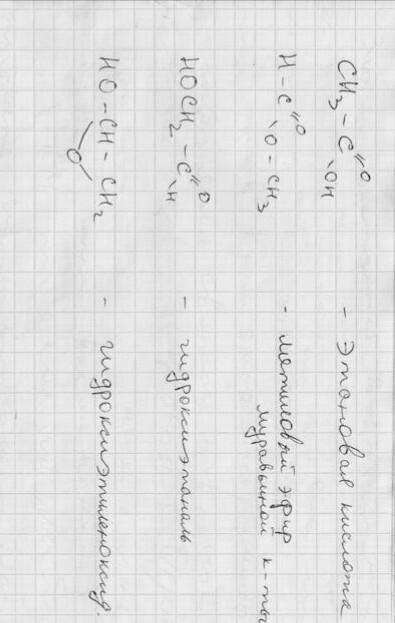 CH₃-C=O OH - этановая кислота
H-C=O O-CH₃ - метиловый эфир
муравьиной к-ты
HOCH₂-C=O H - гидроксиэтаналь
HO-CH-CH₂ O - гидроксиэтиленоксид.